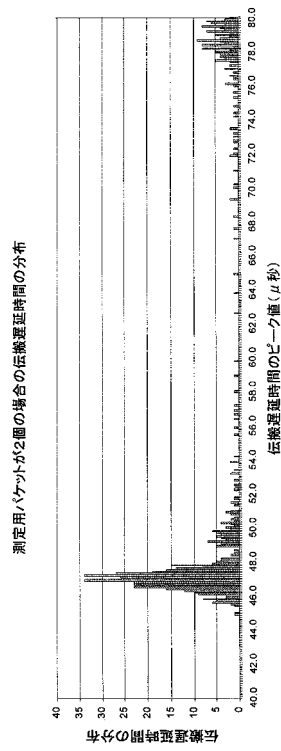 測定用パケットが2個の場合の伝搬遅延時間の分布
伝搬遅延時間の分布
40
35
30
25
20
15
10
5
0
40.0
42.0
44.0
46.0
48.0
50.0
52.0
54.0
56.0
58.0
60.0
62.0
64.0
66.0
68.0
70.0
72.0
74.0
76.0
78.0
80.0
伝搬遅延時間のピーク値(μ秒)